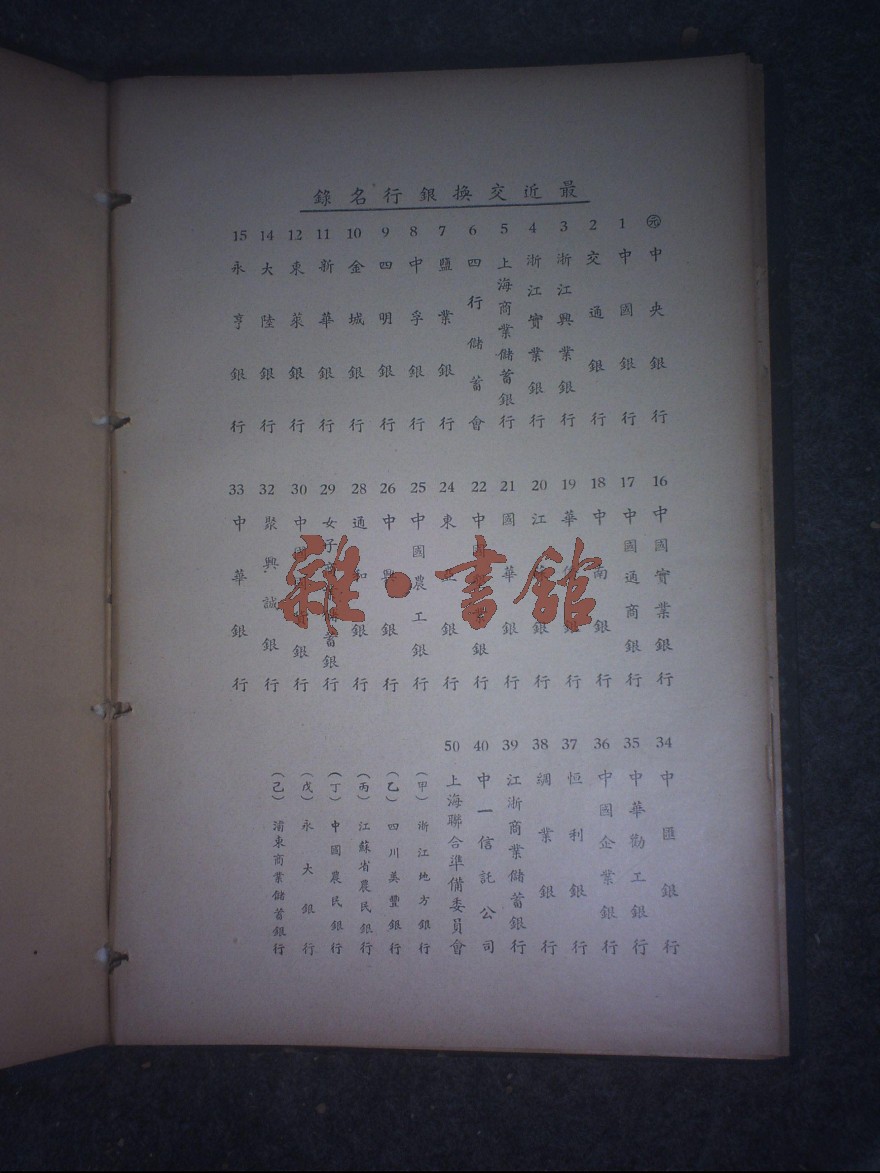 最近交換銀行名錄
㊎ 中央銀行
1 中國銀行
2 交通銀行
3 浙江興業銀行
4 浙江實業銀行
5 上海商業儲蓄銀行
6 四行儲蓄會
7 鹽業銀行
8 中孚銀行
9 四明銀行
10 金城銀行
11 新華銀行
12 東萊銀行
14 大陸銀行
15 永亨銀行
16 中國實業銀行
17 中國通商銀行
18 中南銀行
19 華銀行
20 江銀行
21 國華銀行
22 中國業銀行
24 東亞銀行
25 中國農工銀行
26 中興銀行
28 通和銀行
29 女子商業儲蓄銀行
30 中國國貨銀行
32 聚興誠銀行
33 中華銀行
34 中匯銀行
35 中華勸工銀行
36 中國企業銀行
37 恒利銀行
38 調業銀行
39 江浙商業儲蓄銀行
40 中一信託公司
50 上海聯合準備委員會
(甲) 浙江地方銀行
(乙) 四川美豐銀行
(丙) 江蘇省農民銀行
(丁) 中國農民銀行
(戊) 永大銀行
(己) 浦東商業儲蓄銀行
雜·書館